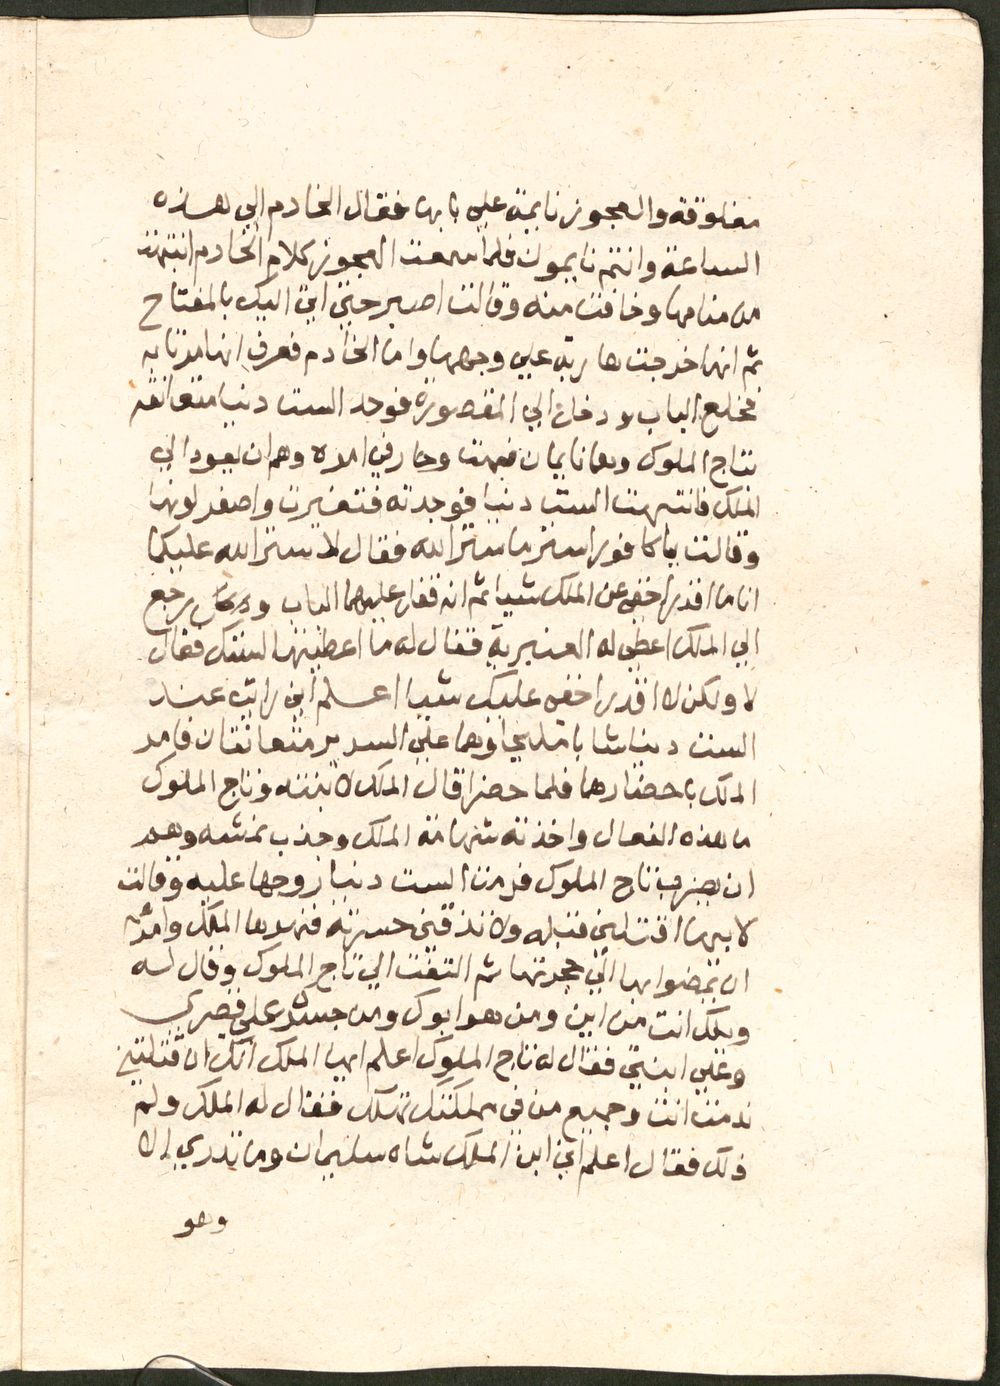 مغلوقة والعجوز نايمة علي بابها فقال الخادم الي هذه
الساعة وانتم نايمون فلما سمعت العجوز كلام الخادم انتبهت
من منامها وخافت منه وقالت اصبر حتي اتي اليك بالمفتاح
ثم انها خرجت هاربة علي وجهها واما الخادم فعرف انها مرتابه
فخلع الباب ودخل الي المقصورة فوجد الست دنيا متعانقه
بتاج الملوك وهما نايمان فبهت وحار في امره وهم ان يعود الي
الملك فانتبهت الست دنيا فوجدته فتغيرت واصفر لونها
وقالت يا كافور استر ما ستر الله فقال لا ستر الله عليكما
انا ما اقدر اخفي عن الملك شيا ثم انه قفل عليهما الباب ورجع
الي الملك اعطي له العنبرية فقال له ما اعطيتها لستك فقال
لا ولكن لا اقدر اخفي عليك شيا اعلم اني رايت عند
الست دنيا شابا مليحا وهما علي السرير متعانقان فامر
الملك باحضارهما فلما حضرا قال الملك لابنته وتاج الملوك
ما هذه الفعال واخذته شهامة الملك وجذب نمشه وهم
ان يضرب تاج الملوك فرمت الست دنيا روحها عليه وقالت
لابيها اقتلني قبله ولا تذقني حسرته فنهرها الملك وامر
ان يمضوا بها الي حجرتها ثم التفت الي تاج الملوك وقال له
ويلك انت من اين ومن هو ابوك ومن جسرك علي قصري
وعلي ابنتي فقال له تاج الملوك اعلم ايها الملك انك ان قتلتني
ندمت انت وجميع من في مملكتك تهلك فقال له الملك ولم
ذلك فقال اعلم اني ابن الملك شاه سليمان وما تدري الا
وهو